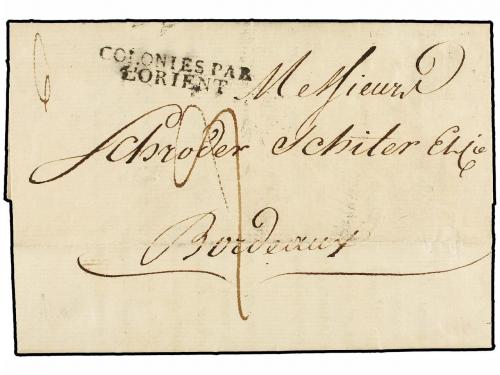 COLONIES PAR
L'ORIENT
Messieurs
Schroder Schiler & Cie
Bordeaux